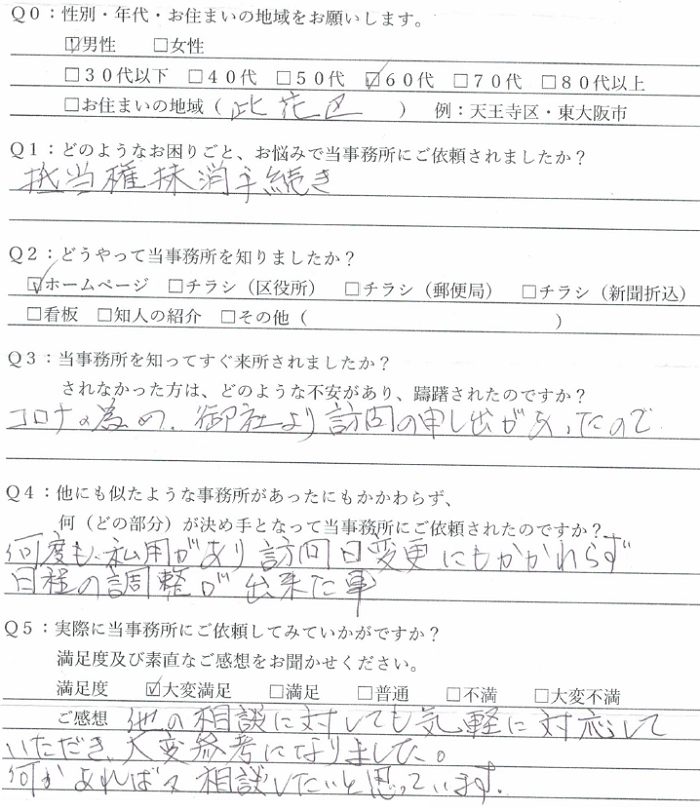 Q0：性別・年代・お住まいの地域をお願いします。
☑男性　□女性
□30代以下　□40代　□50代　☑60代　□70代　□80代以上
□お住まいの地域（ 此花区 ）　例：天王寺区・東大阪市
Q1：どのようなお困りごと、お悩みで当事務所にご依頼されましたか？
抵当権抹消手続き
Q2：どうやって当事務所を知りましたか？
☑ホームページ　□チラシ（区役所）　□チラシ（郵便局）　□チラシ（新聞折込）
□看板　□知人の紹介　□その他（　　　　　　　　　　）
Q3：当事務所を知ってすぐ来所されましたか？
されなかった方は、どのような不安があり、躊躇されたのですか？
コロナの為め、御社より訪問の申し出があったので
Q4：他にも似たような事務所があったにもかかわらず、
何（どの部分）が決め手となって当事務所にご依頼されたのですか？
何度も私用があり訪問日変更にもかかわらず
日程の調整が出来た事
Q5：実際に当事務所にご依頼してみていかがですか？
満足度及び素直なご感想をお聞かせください。
満足度　☑大変満足　□満足　□普通　□不満　□大変不満
ご感想　他の相談に対しても気軽に対応して
いただき、大変参考になりました。
何かあれば又相談したいと思っています。